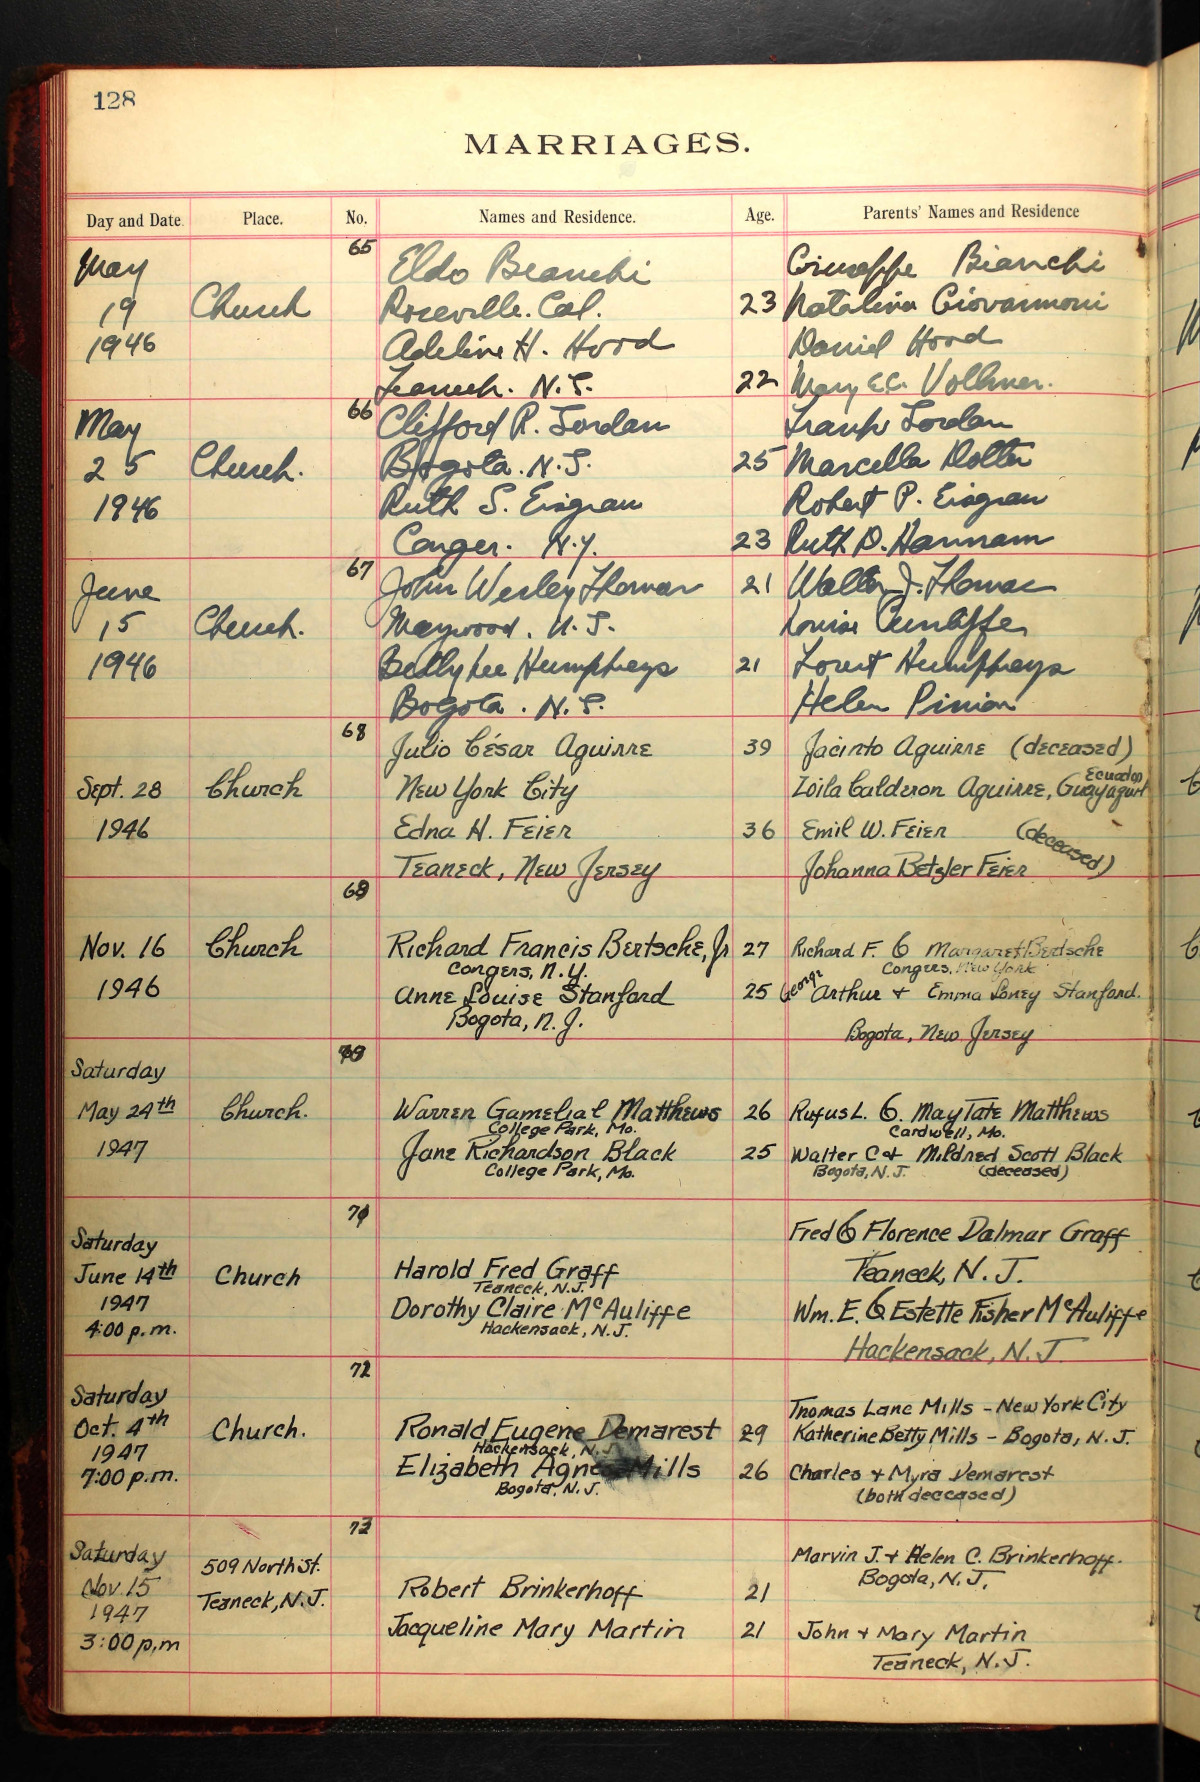 128
MARRIAGES.
Day and Date. Place. No. Names and Residence. Age. Parents' Names and Residence
May 65 Eldo Bianchi Giuseppe Bianchi
19 Church Roseville. Cal. 23 Natalina Giovannoni
1946 Adeline H. Hood Daniel Hood
Teaneck. N.J. 22 Mary E.C. Vollmer.
May 66 Clifford R. Jordan Frank Jordan
25 Church. Bogota. N.J. 25 Marcella Dotter
1946 Ruth S. Eisgrau Robert P. Eisgrau
Conger. N.Y. 23 Ruth D. Hannam
June 67 John Wesley Thomas 21 Walter J. Thomas
15 Church. Maywood. N.J. Louise Cunliffe
1946 Betty Lee Humphreys 21 Humphreys
Bogota. N.J. Helen Pinion
68 Julio César Aguirre 39 Jacinto Aguirre (deceased)
Sept. 28 Church New York City Zoila Calderon Aguirre, Guayaquil Ecuador
1946 Edna H. Feier 36 Emil W. Feier (deceased)
Teaneck, New Jersey Johanna Betzler Feier
69
Nov. 16 Church Richard Francis Bertsche, Jr 27 Richard F. & Margaret Bertsche
Congers, N.Y. Congers, New York
1946 Anne Louise Stanford 25 George Arthur + Emma Loney Stanford.
Bogota, N.J. Bogota, New Jersey
Saturday 70
May 24th Church. Warren Gamelial Matthews 26 Rufus L. & May Tate Matthews
College Park, Mo. Cardwell, Mo.
1947 Jane Richardson Black 25 Walter C + Mildred Scott Black
College Park, Mo. Bogota, N.J. (deceased)
71
Saturday Fred & Florence Dalmar Graff
June 14th Church Harold Fred Graff Teaneck, N.J.
Teaneck, N.J.
1947 Dorothy Claire McAuliffe Wm. E. & Estette Fisher McAuliffe
4:00 p.m. Hackensack, N.J. Hackensack, N.J.
72
Saturday Thomas Lane Mills - New York City
Oct. 4th Church. Ronald Eugene Demarest 29 Katherine Betty Mills - Bogota, N.J.
1947 Hackensack, N.J.
7:00 p.m. Elizabeth Agnes Mills 26 Charles + Myra Demarest
Bogota, N.J. (both deceased)
73
Saturday 509 North St. Marvin J. + Helen C. Brinkerhoff.
Nov. 15 Teaneck, N.J. Robert Brinkerhoff 21 Bogota, N.J.
1947 Jacqueline Mary Martin 21 John + Mary Martin
3:00 p.m Teaneck, N.J.